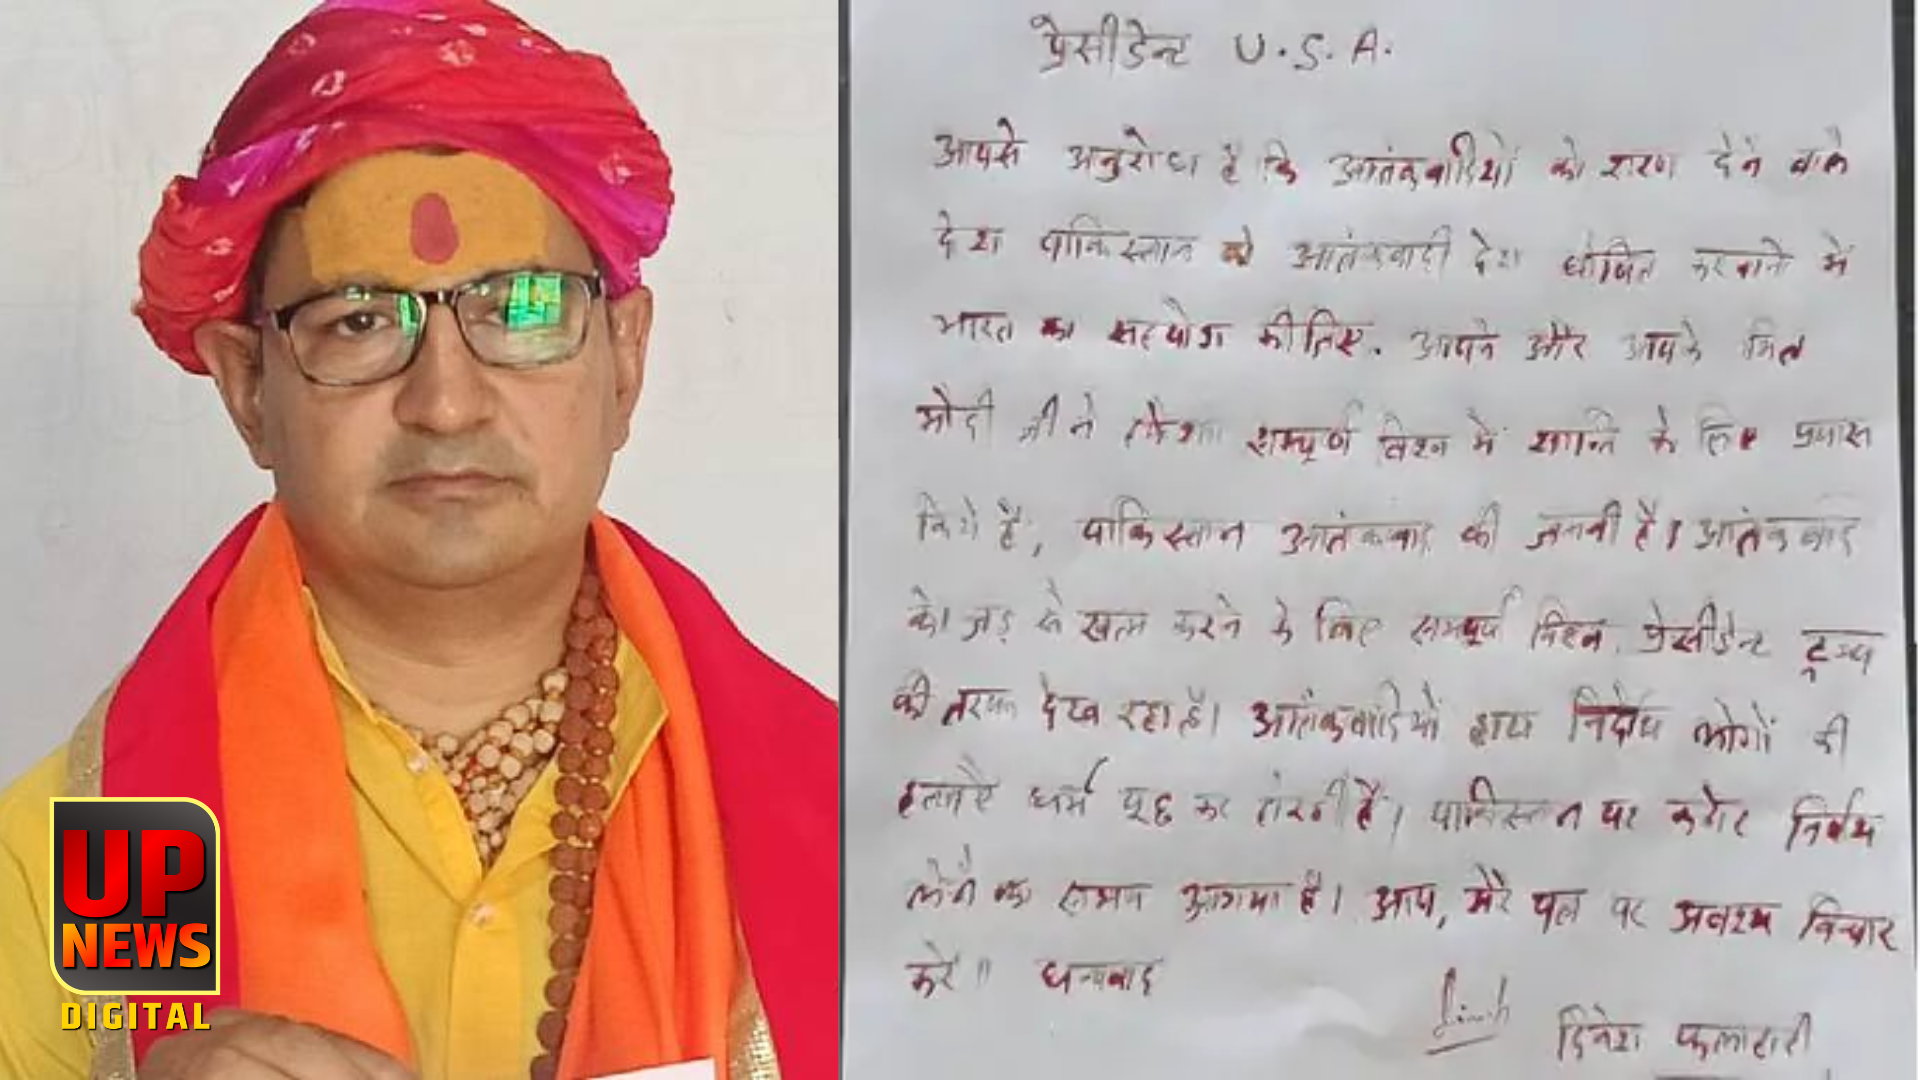 प्रेसीडेन्ट U.S.A.
आपसे अनुरोध है कि आतंकवादियों को शरण देने वाले
देश पाकिस्तान को आतंकवादी देश घोषित करवाने में
भारत का सहयोग कीजिए. आपने और आपके मित्र
मोदी जी ने सम्पूर्ण विश्व में शान्ति के लिए प्रयास
किये है, पाकिस्तान आतंकवाद की जननी है। आतंकवाद
को जड़ से खत्म करने के लिए सम्पूर्ण विश्व प्रेसीडेन्ट ट्रम्प
की तरफ देख रहा है। आतंकवादियों द्वारा निर्दोष लोगों की
धर्म पूछ कर है। पाकिस्तान पर कठोर निर्णय
लेने का समय आगया है। आप, मेरे पत्र पर अवश्य विचार
करें॥ धन्यवाद
दिनेश फलाहारी
UP
NEWS
DIGITAL